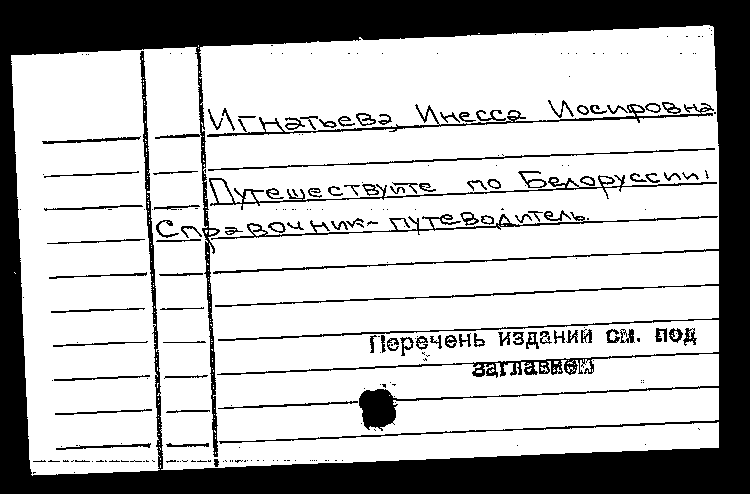 Игнатьева, Инесса Иосифовна
Путешествуйте по Белоруссии:
Справочник-путеводитель.
Перечень изданий см. под
заглавием